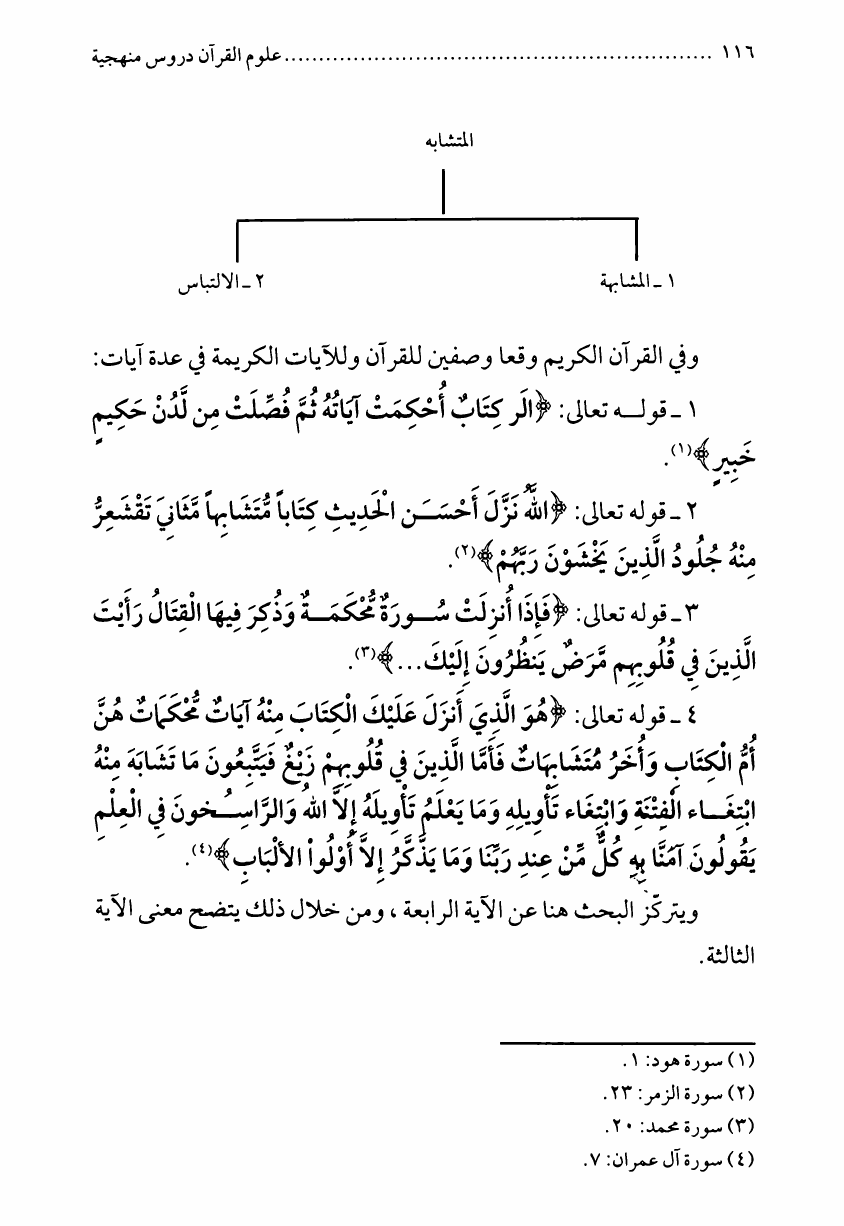 ١١٦ ............................................................. علوم القرآن دروس منهجية
المتشابه
١ ـ المشابهة
٢ ـ الالتباس
وفي القرآن الكريم وقعا وصفين للقرآن وللآيات الكريمة في عدة آيات:
١ ـ قولـه تعالى: ﴿الَر كِتَابٌ أُحْكِمَتْ آيَاتُهُ ثُمَّ فُصِّلَتْ مِن لَّدُنْ حَكِيمٍ
خَبِيرٍ﴾(١).
٢ ـ قوله تعالى: ﴿اللهُ نَزَّلَ أَحْسَـنَ الْحَدِيثِ كِتَاباً مُّتَشَابِهاً مَّثَانِيَ تَقْشَعِرُّ
مِنْهُ جُلُودُ الَّذِينَ يَخْشَوْنَ رَبَّهُمْ﴾(٢).
٣ ـ قوله تعالى: ﴿فَإِذَا أُنزِلَتْ سُـورَةٌ مُّحْكَمَـةٌ وَذُكِرَ فِيهَا الْقِتَالُ رَأَيْتَ
الَّذِينَ فِي قُلُوبِهِم مَّرَضٌ يَنظُرُونَ إِلَيْكَ...﴾(٣).
٤ ـ قوله تعالى: ﴿هُوَ الَّذِيَ أَنْزَلَ عَلَيْكَ الْكِتَابَ مِنْهُ آيَاتٌ مُّحْكَمَاتٌ هُنَّ
أُمُّ الْكِتَابِ وَأُخَرُ مُتَشَابِهَاتٌ فَأَمَّا الَّذِينَ في قُلُوبِهِمْ زَيْغٌ فَيَتَّبِعُونَ مَا تَشَابَهَ مِنْهُ
ابْتِغَـاء الْفِتْنَةِ وَابْتِغَاء تَأْوِيلِهِ وَمَا يَعْلَمُ تَأْوِيلَهُ إِلاَّ اللهُ وَالرَّاسِـخُونَ فِي الْعِلْمِ
يَقُولُونَ آمَنَّا بِهِ كُلٌّ مِّنْ عِندِ رَبِّنَا وَمَا يَذَّكَّرُ إِلاَّ أُوْلُواْ الألْبَابِ﴾(٤).
ويتركّز البحث هنا عن الآية الرابعة، ومن خلال ذلك يتضح معنى الآية
الثالثة.
(١) سورة هود: ١.
(٢) سورة الزمر: ٢٣.
(٣) سورة محمد: ٢٠.
(٤) سورة آل عمران: ٧.